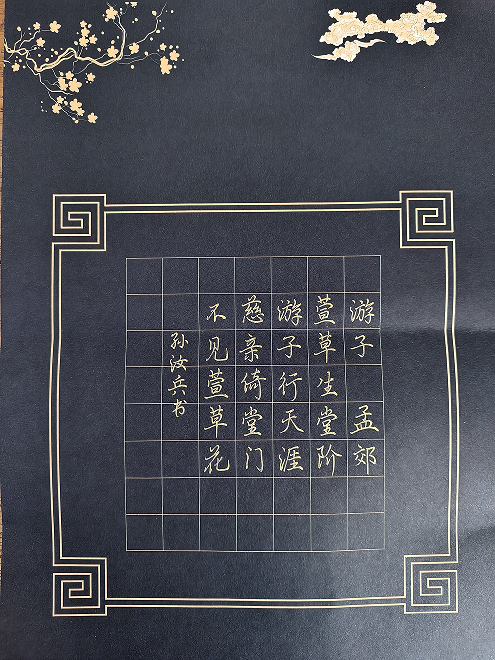 游子 孟郊
萱草生堂阶
游子行天涯
慈亲倚堂门
不见萱草花
孙汝兵书